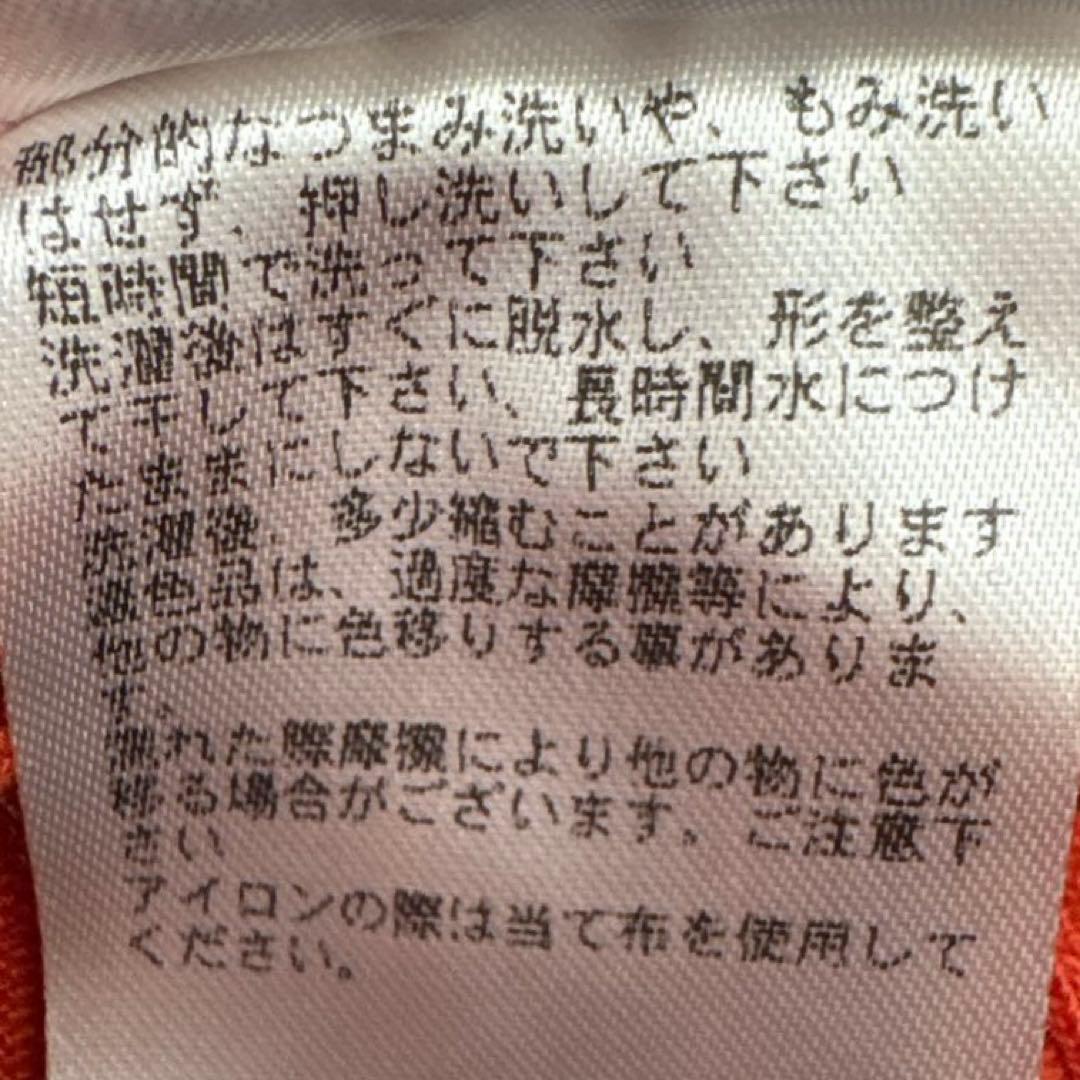 部分的なつまみ洗いや、もみ洗い
はせず、押し洗いして下さい
短時間で洗って下さい
洗濯後はすぐに脱水し、形を整え
て干して下さい、長時間水につけ
たままにしないで下さい
洗濯後、多少縮むことがあります
濃色品は、過度な摩擦等により、
他の物に色移りする事がありま
す。
濡れた際摩擦により他の物に色が
移る場合がございます。ご注意下
さい
アイロンの際は当て布を使用して
ください。